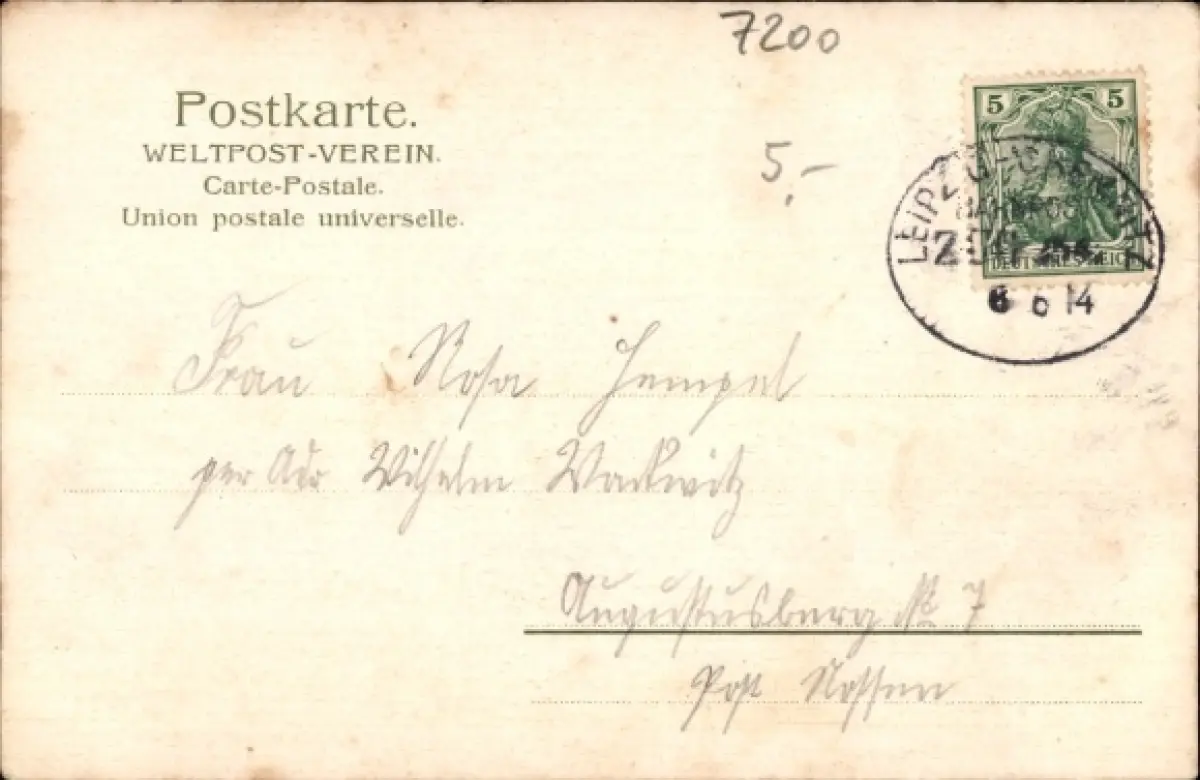 7200
Postkarte.
WELTPOST-VEREIN.
Carte-Postale.
Union postale universelle.
5.-
5 5
DEUTSCHES REICH
LEIPZIG
BAHNPOST
ZUG
6 6 14
Frau Rosa Hempel
per Adr Wilhelm Wackwitz
Augustusberg № 7
Post Nossen